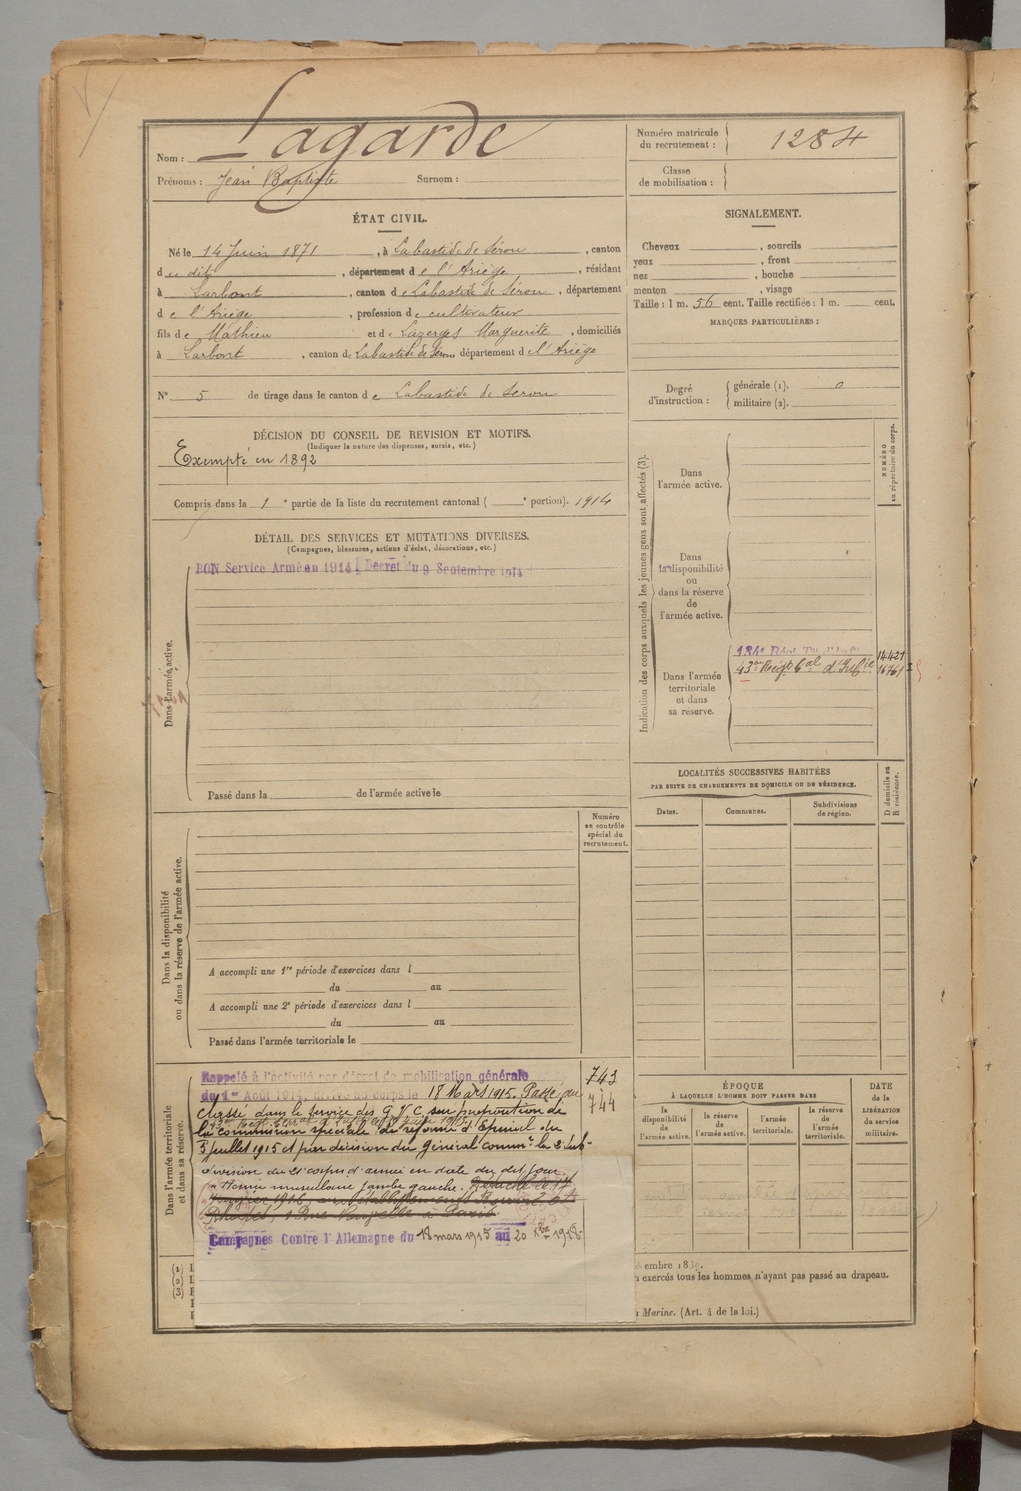 Nom : Lagarde
Prénoms : Jean Baptiste Surnom :
Numéro matricule du recrutement : 1284
Classe de mobilisation :
ÉTAT CIVIL.
Né le 14 Juin 1871, à Labastide de Sérou, canton
du dit, département de l'Ariège, résidant
à Larbont, canton de Labastide de Sérou, département
de l'Ariège, profession de cultivateur
fils de Mathieu et de Lazerges Marguerite, domiciliés
à Larbont, canton de Labastide de Sérou, département de l'Ariège
N° 5 de tirage dans le canton de Labastide de Serou
SIGNALEMENT.
Cheveux , sourcils
yeux , front
nez , bouche
menton , visage
Taille : 1 m. 56 cent. Taille rectifiée : 1 m. cent.
MARQUES PARTICULIÈRES :
Degré d'instruction : générale (1). 0
militaire (2).
DÉCISION DU CONSEIL DE REVISION ET MOTIFS.
(Indiquer la nature des dispenses, sursis, etc.)
Exempté en 1892
Compris dans la 1e partie de la liste du recrutement cantonal ( e portion). 1914
DÉTAIL DES SERVICES ET MUTATIONS DIVERSES.
(Campagnes, blessures, actions d'éclat, décorations, etc.)
Dans l'armée active.
BON Service Armé en 1914 Décret du 9 Septembre 1914
Passé dans la de l'armée active le
Indication des corps auxquels les jeunes gens sont affectés (3).
NUMÉRO au répertoire du corps.
Dans l'armée active.
Dans la disponibilité ou dans la réserve de l'armée active.
Dans l'armée territoriale et dans sa réserve.
134e Régt
43e Régt d'Inf
14421
16761
LOCALITÉS SUCCESSIVES HABITÉES
PAR SUITE DE CHANGEMENTS DE DOMICILE OU DE RÉSIDENCE.
D domicile ou R résidence.
Dates. Communes. Subdivisions de région.
Dans la disponibilité ou dans la réserve de l'armée active.
Numéro au contrôle spécial du recrutement.
A accompli une 1re période d'exercices dans l
du au
A accompli une 2e période d'exercices dans l
du au
Passé dans l'armée territoriale le
Dans l'armée territoriale et dans sa réserve.
Rappelé à l'activité par décret de mobilisation générale
du 1er Août 1914, arrivé au corps le 18 Mars 1915. Passé au
classé dans le service des G.V.C. sur proposition de
la commission spéciale de réforme d'Epinal du
5 juillet 1915 et par décision du général commt la subdivision
du 21e corps d'armée en date du dit jour
Hernie musculaire jambe gauche. Détaché le 17
Janvier 1916, aux établissements
à Paris
Campagnes Contre l'Allemagne du 18 mars 1915 au 20 Xbre 1918
743
744
ÉPOQUE
À LAQUELLE L'HOMME DOIT PASSER DANS
la disponibilité de l'armée active. la réserve de l'armée active. l'armée territoriale. la réserve de l'armée territoriale.
DATE de la LIBÉRATION du service militaire.
(1)
(2)
(3)
exercés tous les hommes n'ayant pas passé au drapeau.
Marine. (Art. 4 de la loi.)